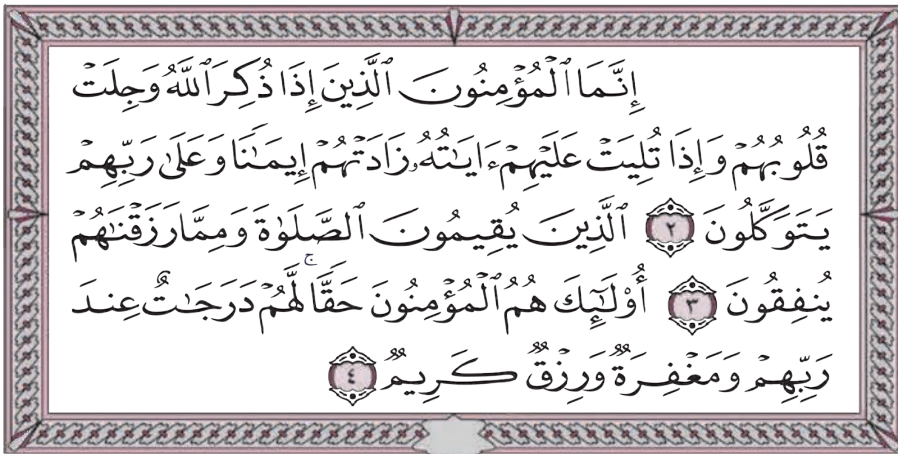 إِنَّمَا ٱلْمُؤْمِنُونَ ٱلَّذِينَ إِذَا ذُكِرَ ٱللَّهُ وَجِلَتْ
قُلُوبُهُمْ وَإِذَا تُلِيَتْ عَلَيْهِمْ ءَايَٰتُهُۥ زَادَتْهُمْ إِيمَٰنًا وَعَلَىٰ رَبِّهِمْ
يَتَوَكَّلُونَ ٢ ٱلَّذِينَ يُقِيمُونَ ٱلصَّلَوٰةَ وَمِمَّا رَزَقْنَٰهُمْ
يُنفِقُونَ ٣ أُو۟لَٰٓئِكَ هُمُ ٱلْمُؤْمِنُونَ حَقًّا ۚ لَّهُمْ دَرَجَٰتٌ عِندَ
رَبِّهِمْ وَمَغْفِرَةٌ وَرِزْقٌ كَرِيمٌ ٤